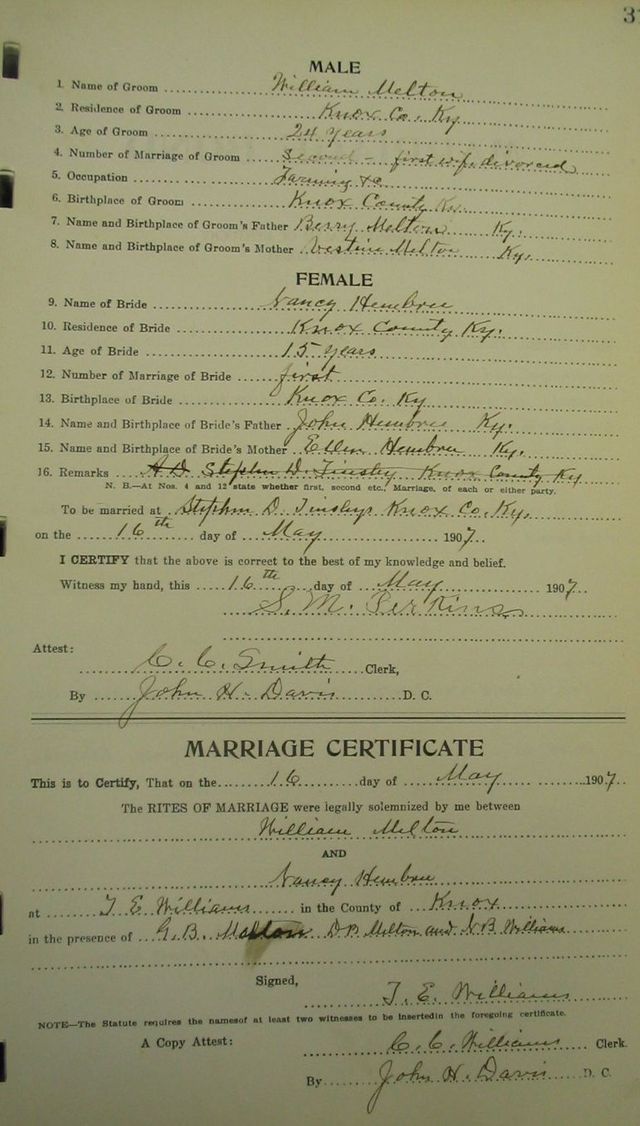 3
MALE
1. Name of Groom William Melton
2. Residence of Groom Knox Co. Ky
3. Age of Groom 24 years
4. Number of Marriage of Groom Second - first wife divorced
5. Occupation Farming &c
6. Birthplace of Groom Knox County Ky.
7. Name and Birthplace of Groom's Father Berry Melton Ky.
8. Name and Birthplace of Groom's Mother Melton Ky.
FEMALE
9. Name of Bride Nancy Hembree
10. Residence of Bride Knox County Ky.
11. Age of Bride 15 years
12. Number of Marriage of Bride first
13. Birthplace of Bride Knox Co. Ky
14. Name and Birthplace of Bride's Father John Hembree Ky.
15. Name and Birthplace of Bride's Mother Ellen Hembree Ky.
16. Remarks Stephen D. Tinsley Knox County Ky
N. B.—At Nos. 4 and 12 state whether first, second etc., Marriage, of each or either party.
To be married at Stephen D. Tinsleys Knox Co. Ky.
on the 16th day of May 1907.
I CERTIFY that the above is correct to the best of my knowledge and belief.
Witness my hand, this 16th day of May 1907.
S. M. Perkins
Attest:
C. C. Smith Clerk,
By John H. Davis D. C.
MARRIAGE CERTIFICATE
This is to Certify, That on the 16 day of May 1907
The RITES OF MARRIAGE were legally solemnized by me between
William Melton
AND
Nancy Hembree
at T. E. Williams in the County of Knox
in the presence of G. B. Melton D B Melton and N B Williams
Signed,
T. E. Williams
NOTE—The Statute requires the namesof at least two witnesses to be insertedin the foregoing certificate.
A Copy Attest: C. C. Williams Clerk.
By John H. Davis D. C.